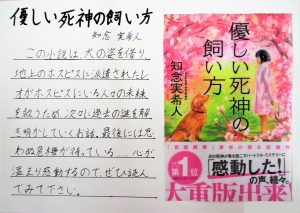 優しい死神の飼い方
知念 実希人
この小説は、犬の姿を借り、
地上のホスピスに派遣されたレ
オがホスピスにいる人々の未練
を救うため、次々に過去の謎を解
き明かしていくお話。最後には思
わぬ危機が待っている……心が
温まり感動するので、ぜひ読ん
でみて下さい。
優しい死神の
飼い方
知念実希人
第1位
「感動した!」
の声、続々。
大重版出来